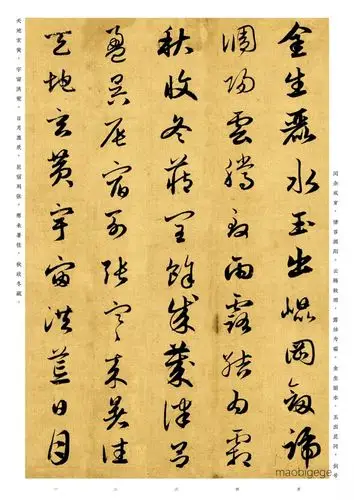 天地玄黄,宇宙洪荒。日月盈昃,辰宿列张。寒来暑往,秋收冬藏。
天地玄黃宇宙洪荒日月
盈昃辰宿列張寒来暑往
秋收冬藏閏餘成歲律呂
調陽雲騰致雨露結為霜
金生麗水玉出崐岡劍號
闰余成岁,律吕调阳。云腾致雨,露结为霜。金生丽水,玉出昆冈。剑号
maobigege